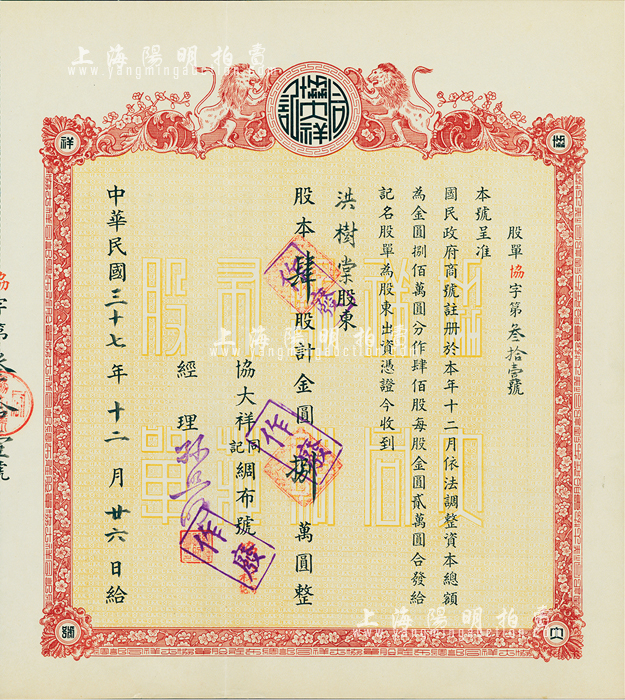 上海陽明拍賣
www.yangmingauction.com
協大祥
同記
祥
協
股單協字第叁拾壹號
本號呈准
國民政府商號註册於本年十二月依法調整資本總額
為金圓捌佰萬圓分作肆佰股每股金圓貳萬圓合發給
記名股單為股東出資憑證今收到
洪樹棠股東
股本肆股計金圓捌萬圓整
協大祥同記綢布號
經理
中華民國三十七年十二月廿六日給
作廢
作廢
作廢
上海陽明拍賣
上海陽明拍賣
號
大
協字第叁拾壹號